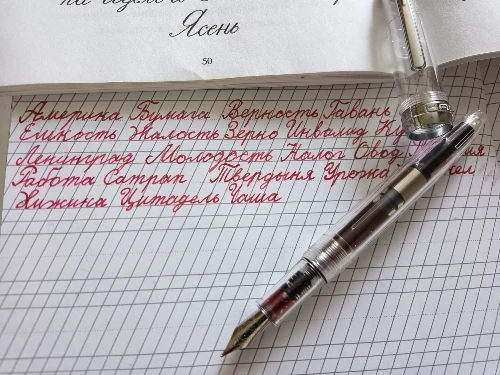 Ясень
50
Америка Бумага Верность Гавань
Емкость Жалость Зерно Инвалид
Ленинград Молодость Налог Овод
Работа Сатрап Твердыня
Хижина Цитадель Чаша